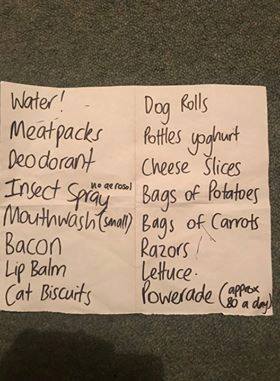 Water!
Meatpacks
Deodorant
Insect Spray no aerosol
Mouthwash (small)
Bacon
Lip Balm
Cat Biscuits
Dog Rolls
Pottles yoghurt
Cheese Slices
Bags of Potatoes
Bags of Carrots
Razors
Lettuce.
Powerade (approx
80 a day)